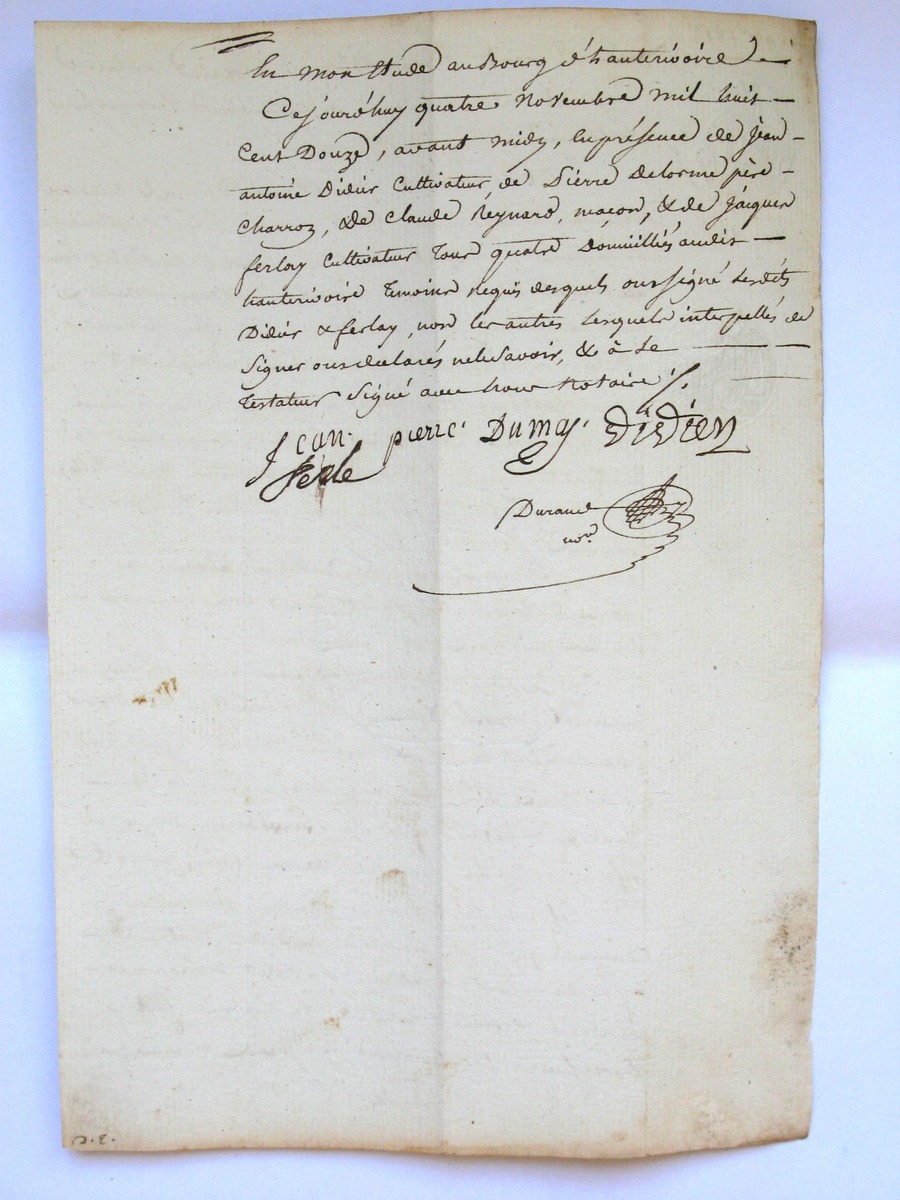 En mon Etude au Bourg d'hauterivoire
Cejourd'huy quatre Novembre mil huit
Cent Douze, avant midy, En présence de jean
antoine Didier Cultivateur, de Pierre Delorme père
Charron, & de Claude Reynard, maçon, & de jacques
ferlay Cultivateur Tous quatre Domicilliés audit
hauterivoire Temoins requis desquels ont signé lesdits
Didier & ferlay, non les autres lesquels interpellés de
Signer ont declarés ne le savoir, & à le
Testateur Signé avec nous Notaire ./.
Jean pierre Dumas Didien
ferle
Durand
nore